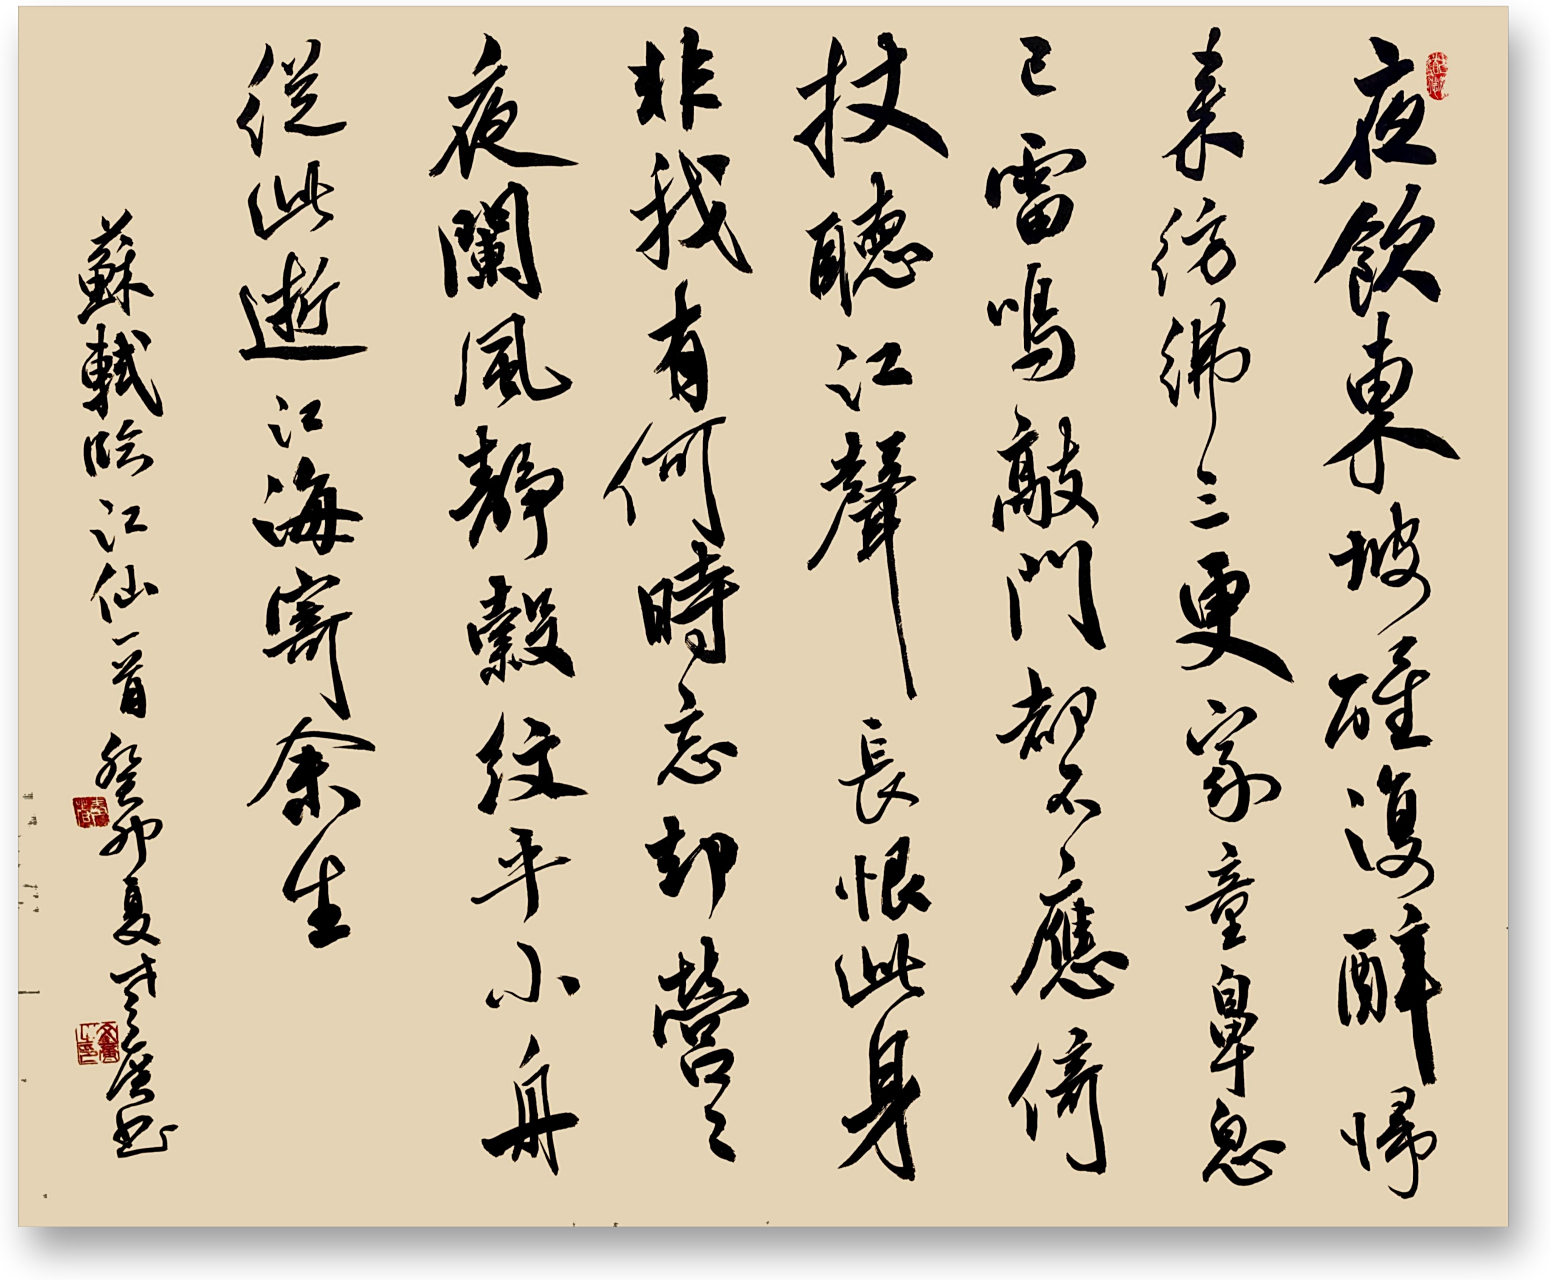 夜飲東坡醒復醉歸
来彷彿三更家童鼻息
已雷鳴敲門都不應倚
杖聽江聲長恨此身
非我有何時忘却營〻
夜闌風靜縠紋平小舟
從此逝江海寄余生
蘇軾臨江仙一首癸卯夏書